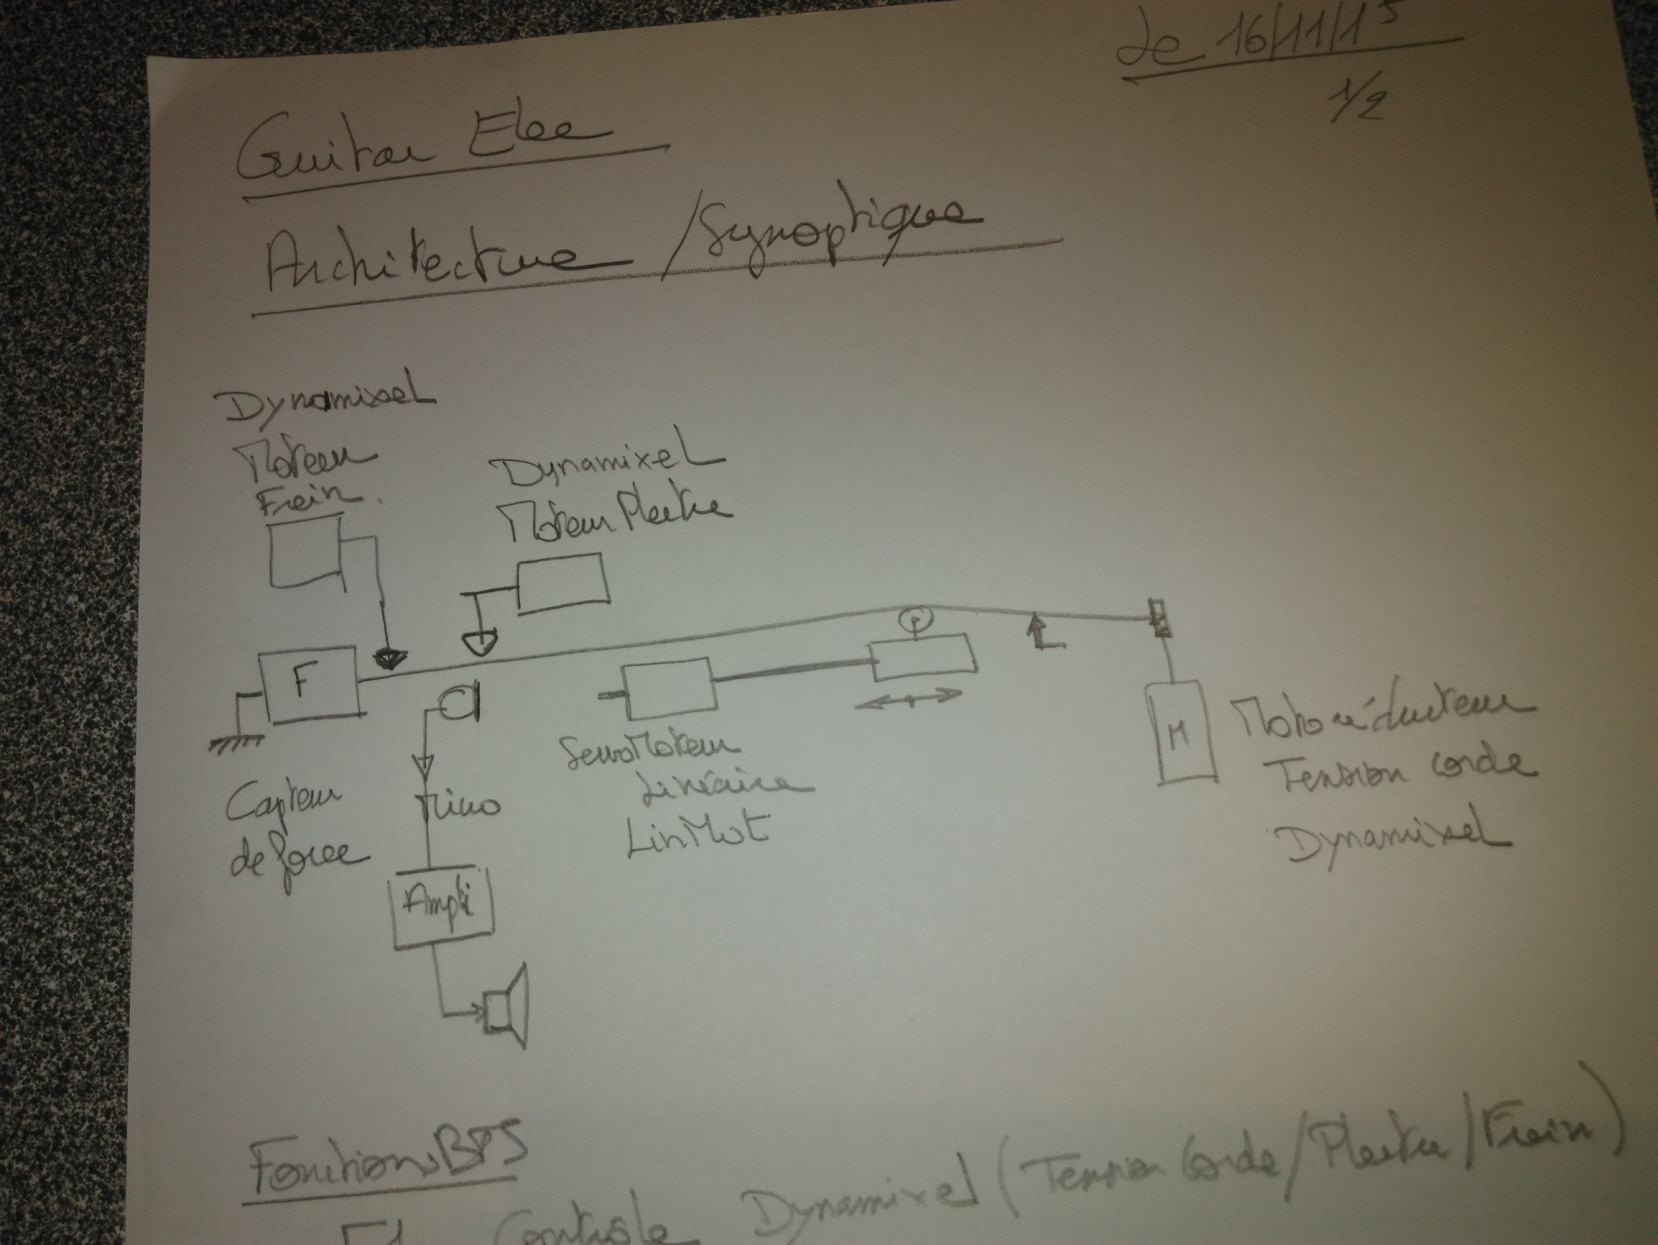 Le 16/11/15
1/2
Guitar Elec
Architecture / Synoptique
Dynamixel
Moteur
Frein.
Dynamixel
Moteur Plectre
F
Capteur
de force
Micro
Ampli
ServoMoteur
Linéaire
LinMot
M
Motoréducteur
Tension corde
Dynamixel
Fonctions BPS
F1 Contrôle Dynamixel (Tension Corde / Plectre / Frein)